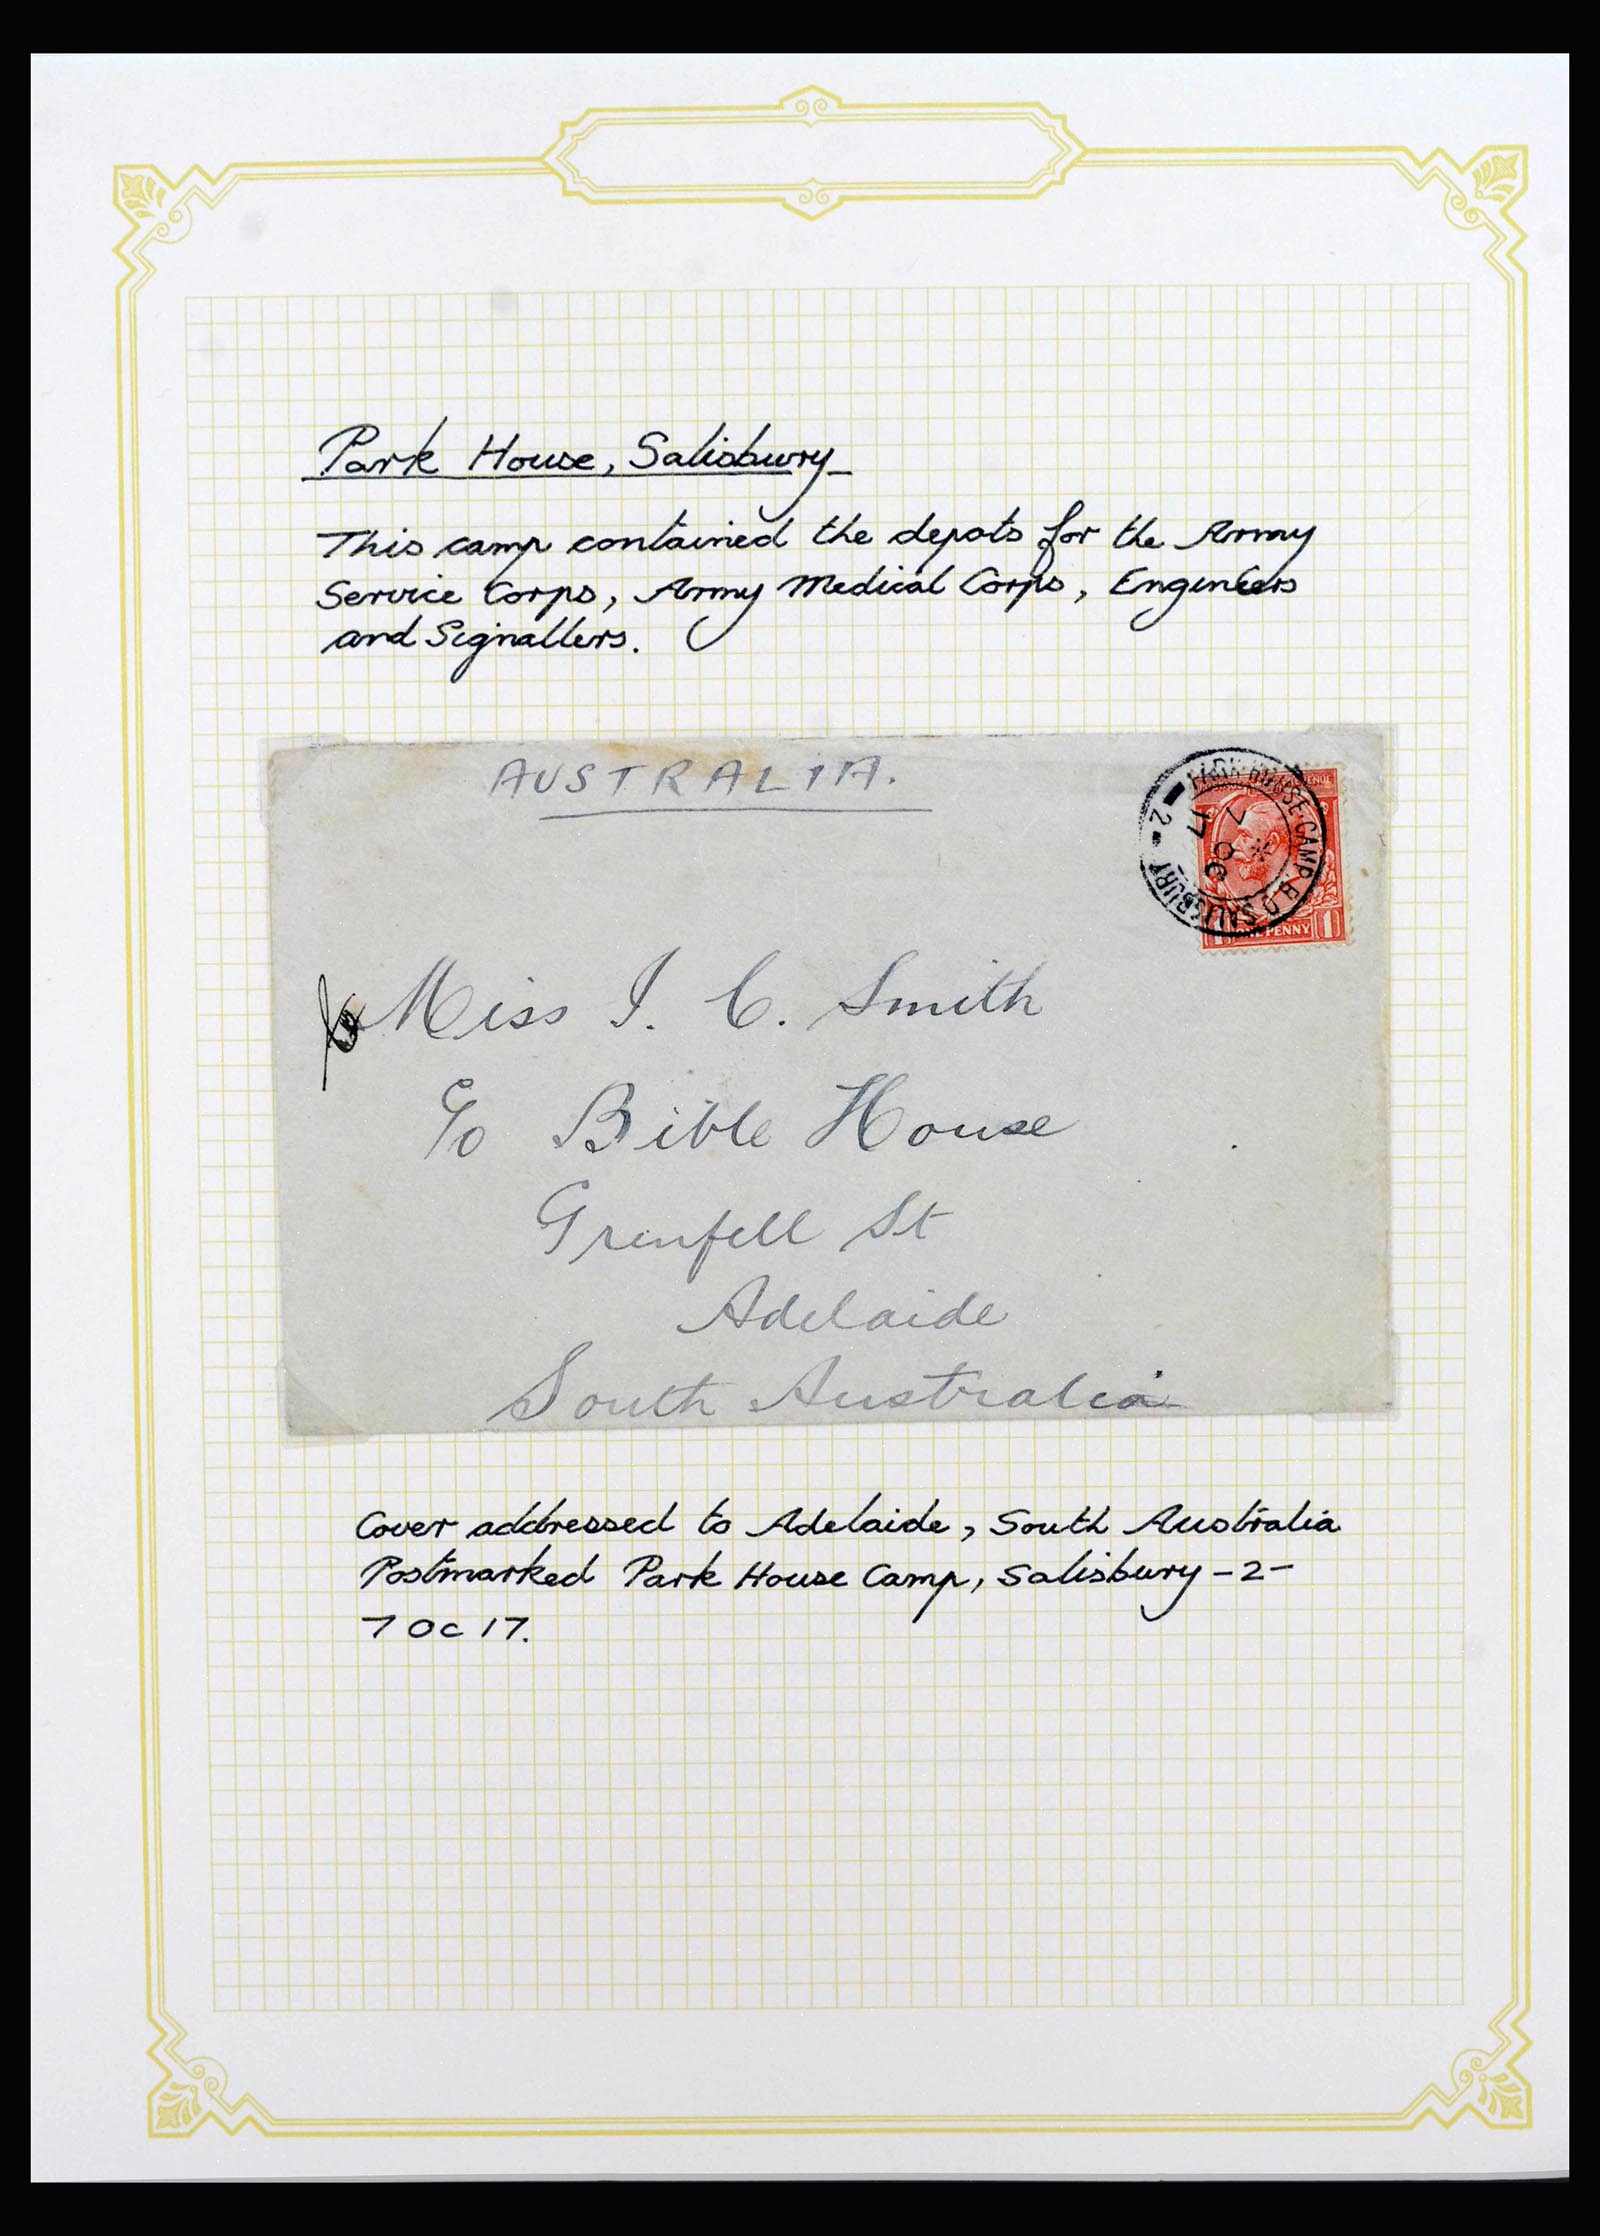 Park House, Salisbury
This camp contained the depots for the Army
Service Corps, Army Medical Corps, Engineers
and Signallers.
AUSTRALIA.
PARK HOUSE CAMP B.O. SALISBURY
- 2 -
7 OC
17
ONE PENNY
1 1
Miss I. C. Smith
C/o Bible House
Grenfell St
Adelaide
South Australia
Cover addressed to Adelaide, South Australia
Postmarked Park House Camp, Salisbury -2-
7 Oc 17.